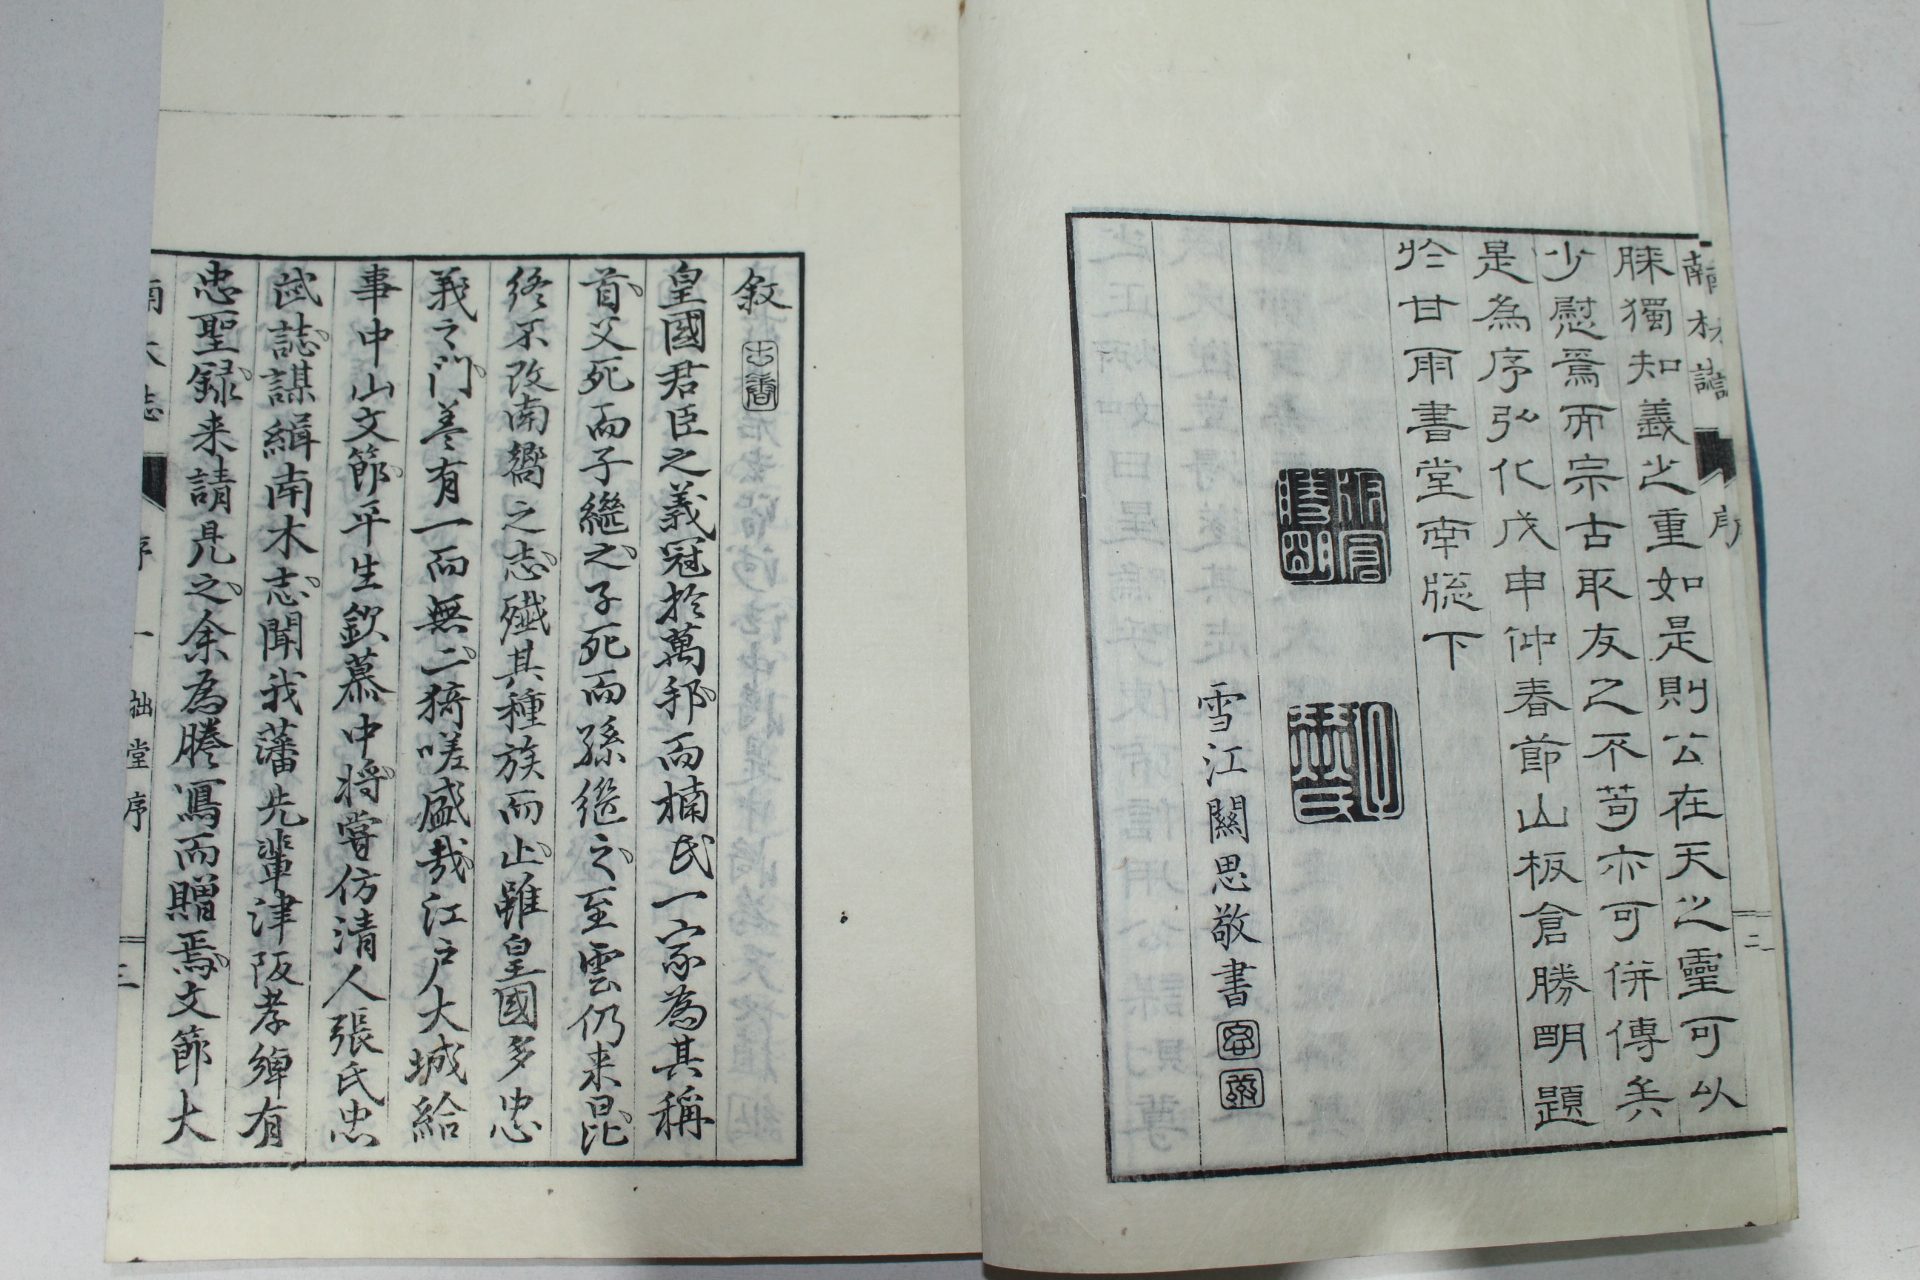 南木誌
序
二
睞獨知義之重如是則公在天之靈可以
少慰焉而宗古取友之不苟亦可併傳矣
是為序弘化戊申仲春節山板倉勝明題
於甘雨書堂南牕下
雪江關思敬書
敘
皇國君臣之義冠於萬邦而楠氏一家為其稱
首父死而子繼之子死而孫繼之至雲仍来昆
終不改南嚮之志殱其種族而止雖皇國多忠
義之門蓋有一而無二猗嗟盛哉江戶大城給
事中山文節平生欽慕中將嘗仿清人張氏忠
武誌謀緝南木志聞我藩先輩津阪孝綽有
忠聖録来請見之余為謄寫而贈焉文節大
南木志
序
一
拙堂序
三